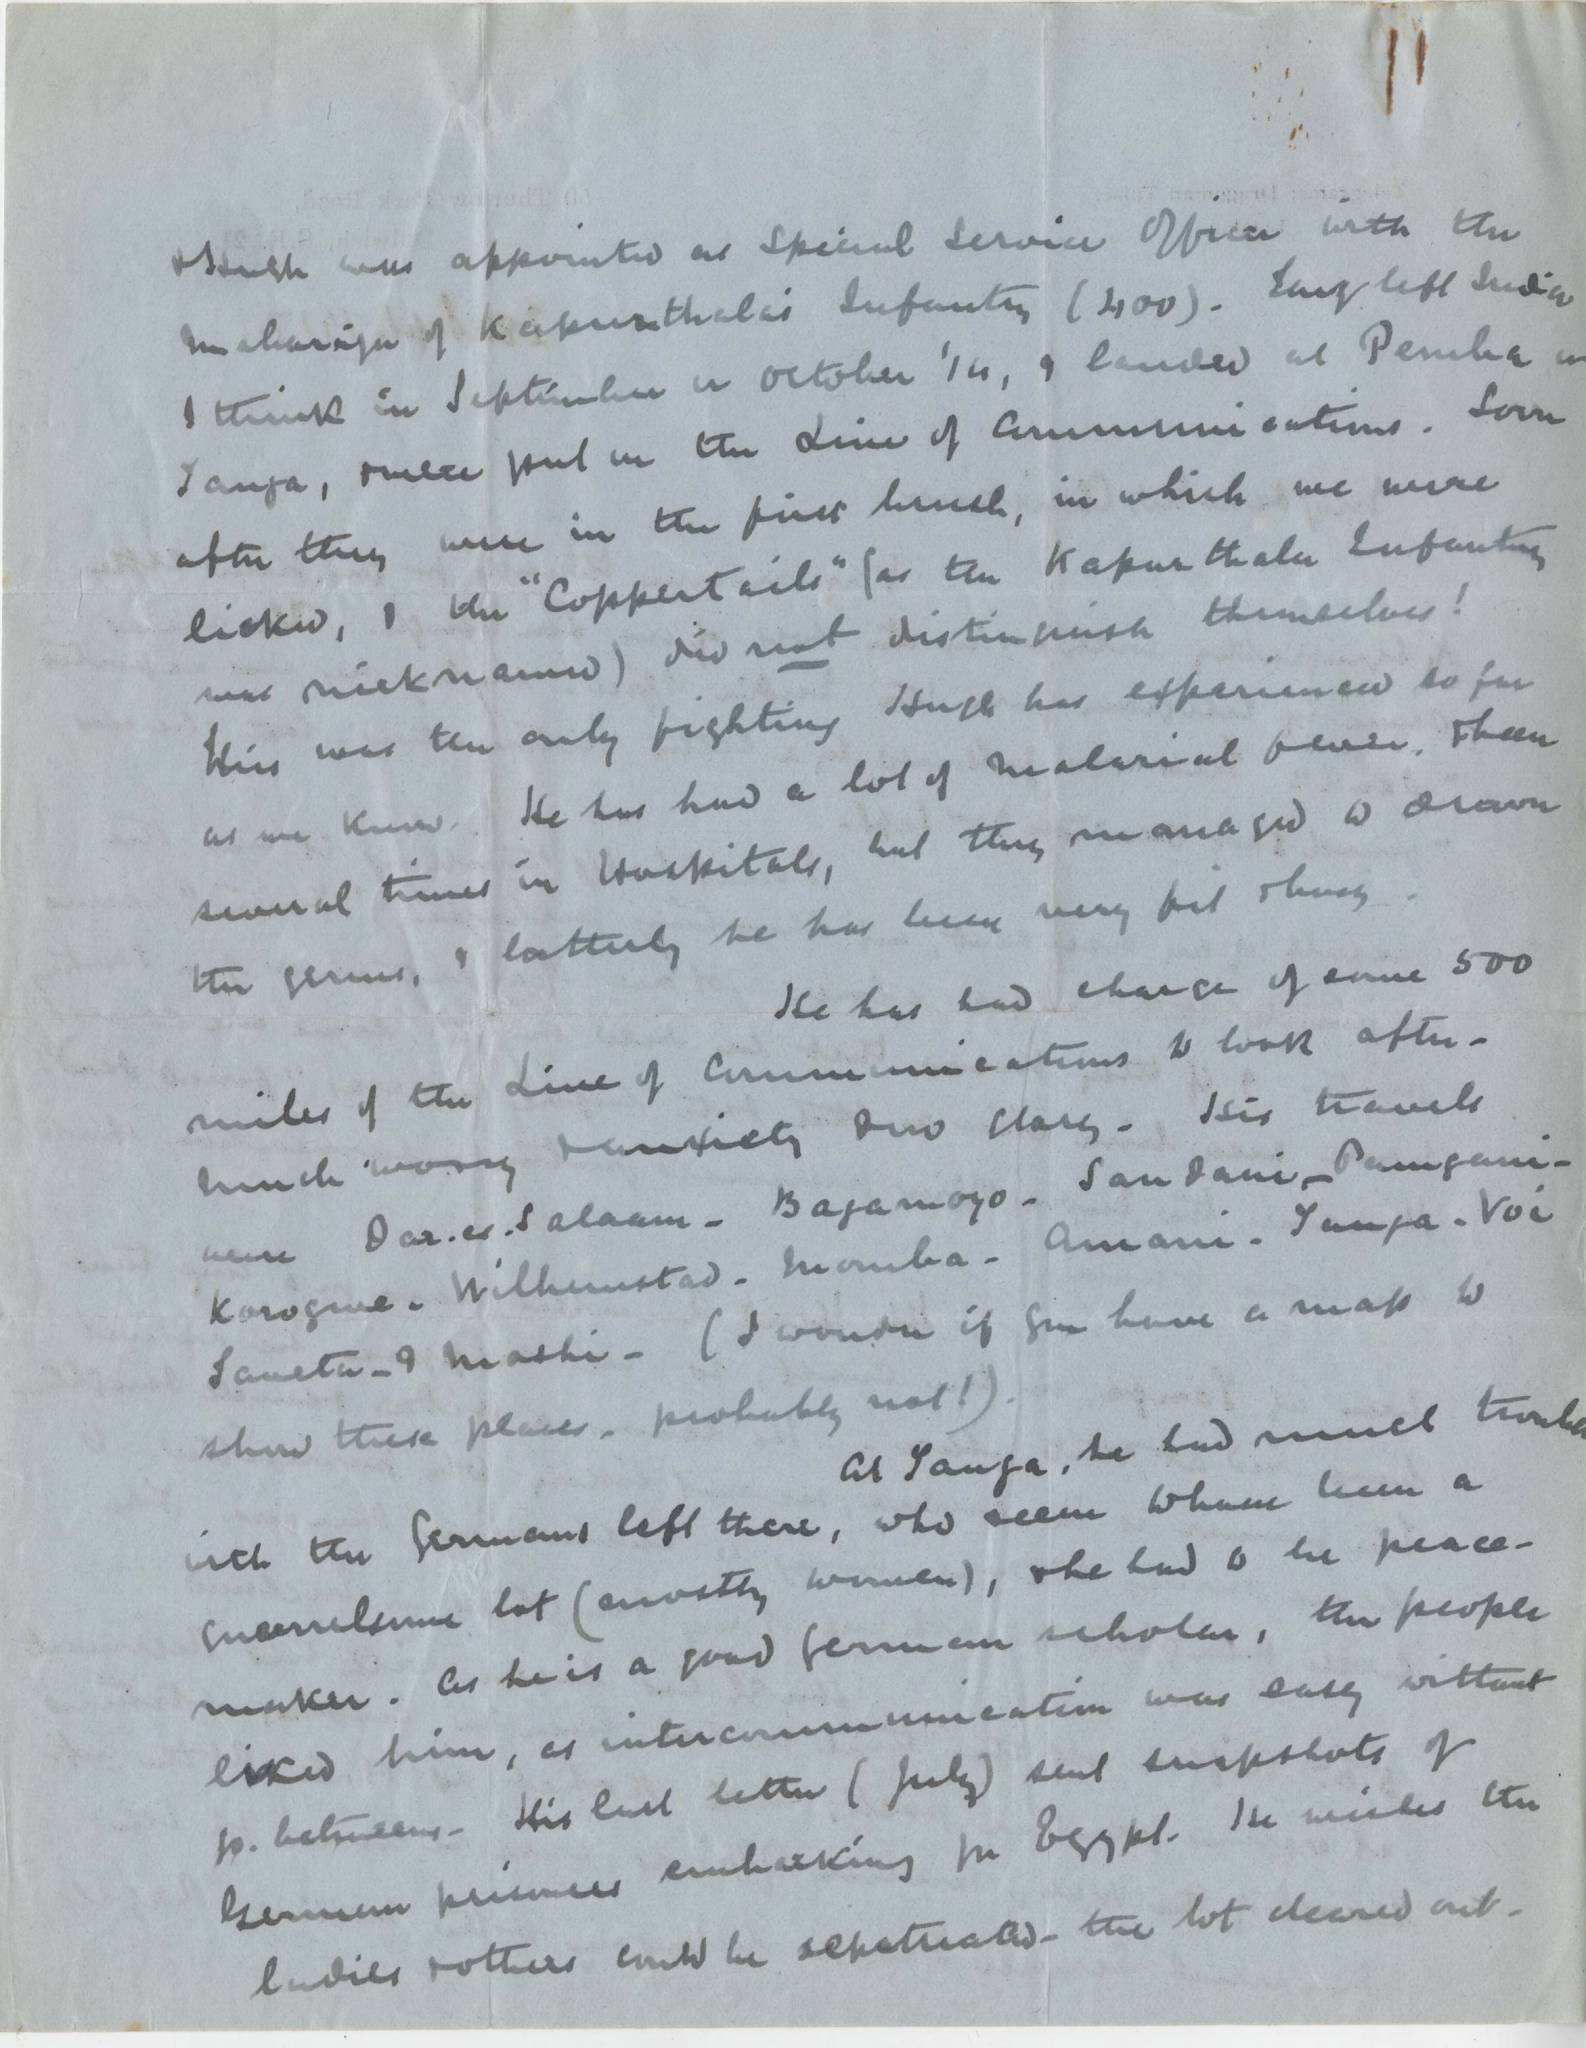 Hugh was appointed as Special Service Officer with the
Maharaja of Kapurthala's Infantry (400). They left India
I think in September or October '14, & landed at Pemba or
Tanga, & were put on the Line of Communications. Soon
after they were in the first brush, in which we were
licked, & the "Coppertails" (as the Kapurthala Infantry
was nicknamed) did not distinguish themselves!
This was the only fighting Hugh has experienced so far
as we know. He has had a lot of malarial fever, & been
several times in Hospitals, but they managed to drown
the germs, & latterly he has been very fit & busy.
He has had charge of some 500
miles of the Line of Communications to look after -
much worry & anxiety & no glory - His travels
were Dar-es-Salaam - Bagamoyo - Sandani - Pangani -
Korogwe - Wilhemstad - Mombo - Amani - Tanga - Voi
Taveta - & Moshi - (I wonder if you have a map to
show these places - probably not!).
At Tanga, he had much trouble
with the Germans left there, who seem to have been a
quarrelsome lot (mostly women), & he had to be peace-
maker. As he is a good German scholar, the people
liked him, as intercommunication was easy without
go-betweens - His last letter (July) sent snapshots of
German prisoners embarking for Egypt. He wishes the
ladies & others could be repatriated - the lot cleared out -